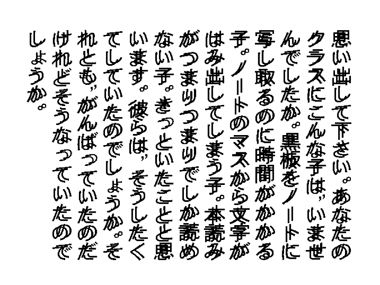 思い出して下さい。あなたの
クラスにこんな子は,いませ
んでしたか。黒板をノートに
写し取るのに時間がかかる
子。ノートのマスから文字が
はみ出してしまう子。本読み
がつまりつまりでしか読め
ない子。きっといたことと思
います。彼らは,そうしたく
てしていたのでしょうか。そ
れとも,がんばっていたのだ
けれどそうなっていたので
しょうか。